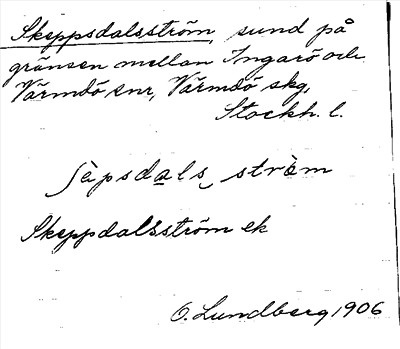 Skeppsdalsström, sund på
gränsen mellan Ingarö och
Värmdö snr, Värmdö skg,
Stockh. l.
ʃèpsdals strèm
Skeppdalsström ek
O. Lundberg 1906